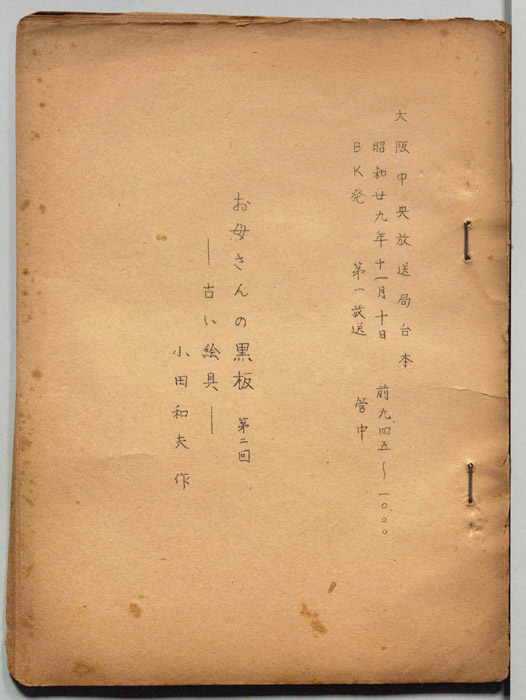 大阪中央放送局台本
昭和廿九年十一月十日 前九四五〜一〇〇〇
BK発 第一放送 管中
お母さんの黒板 第二回
―古い絵具―
小田和夫 作